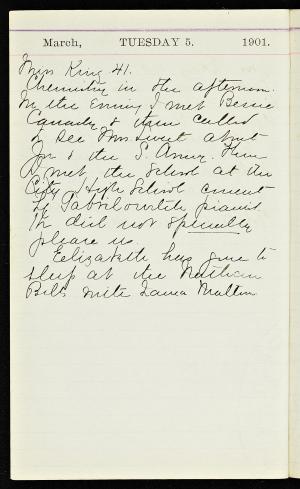 March, TUESDAY 5. 1901.
Miss King 41.
Chemistry in the afternoon.
In the Evening I met Bessie
& then called
to see Mrs Sweet about
Jn & the S. Army. Then
I met the School at the
City High School concert
by Gabrilowitch pianist
He did not specially
please us.
Eelizabeth has gone to
sleep at the Nathan
Bills with Laura